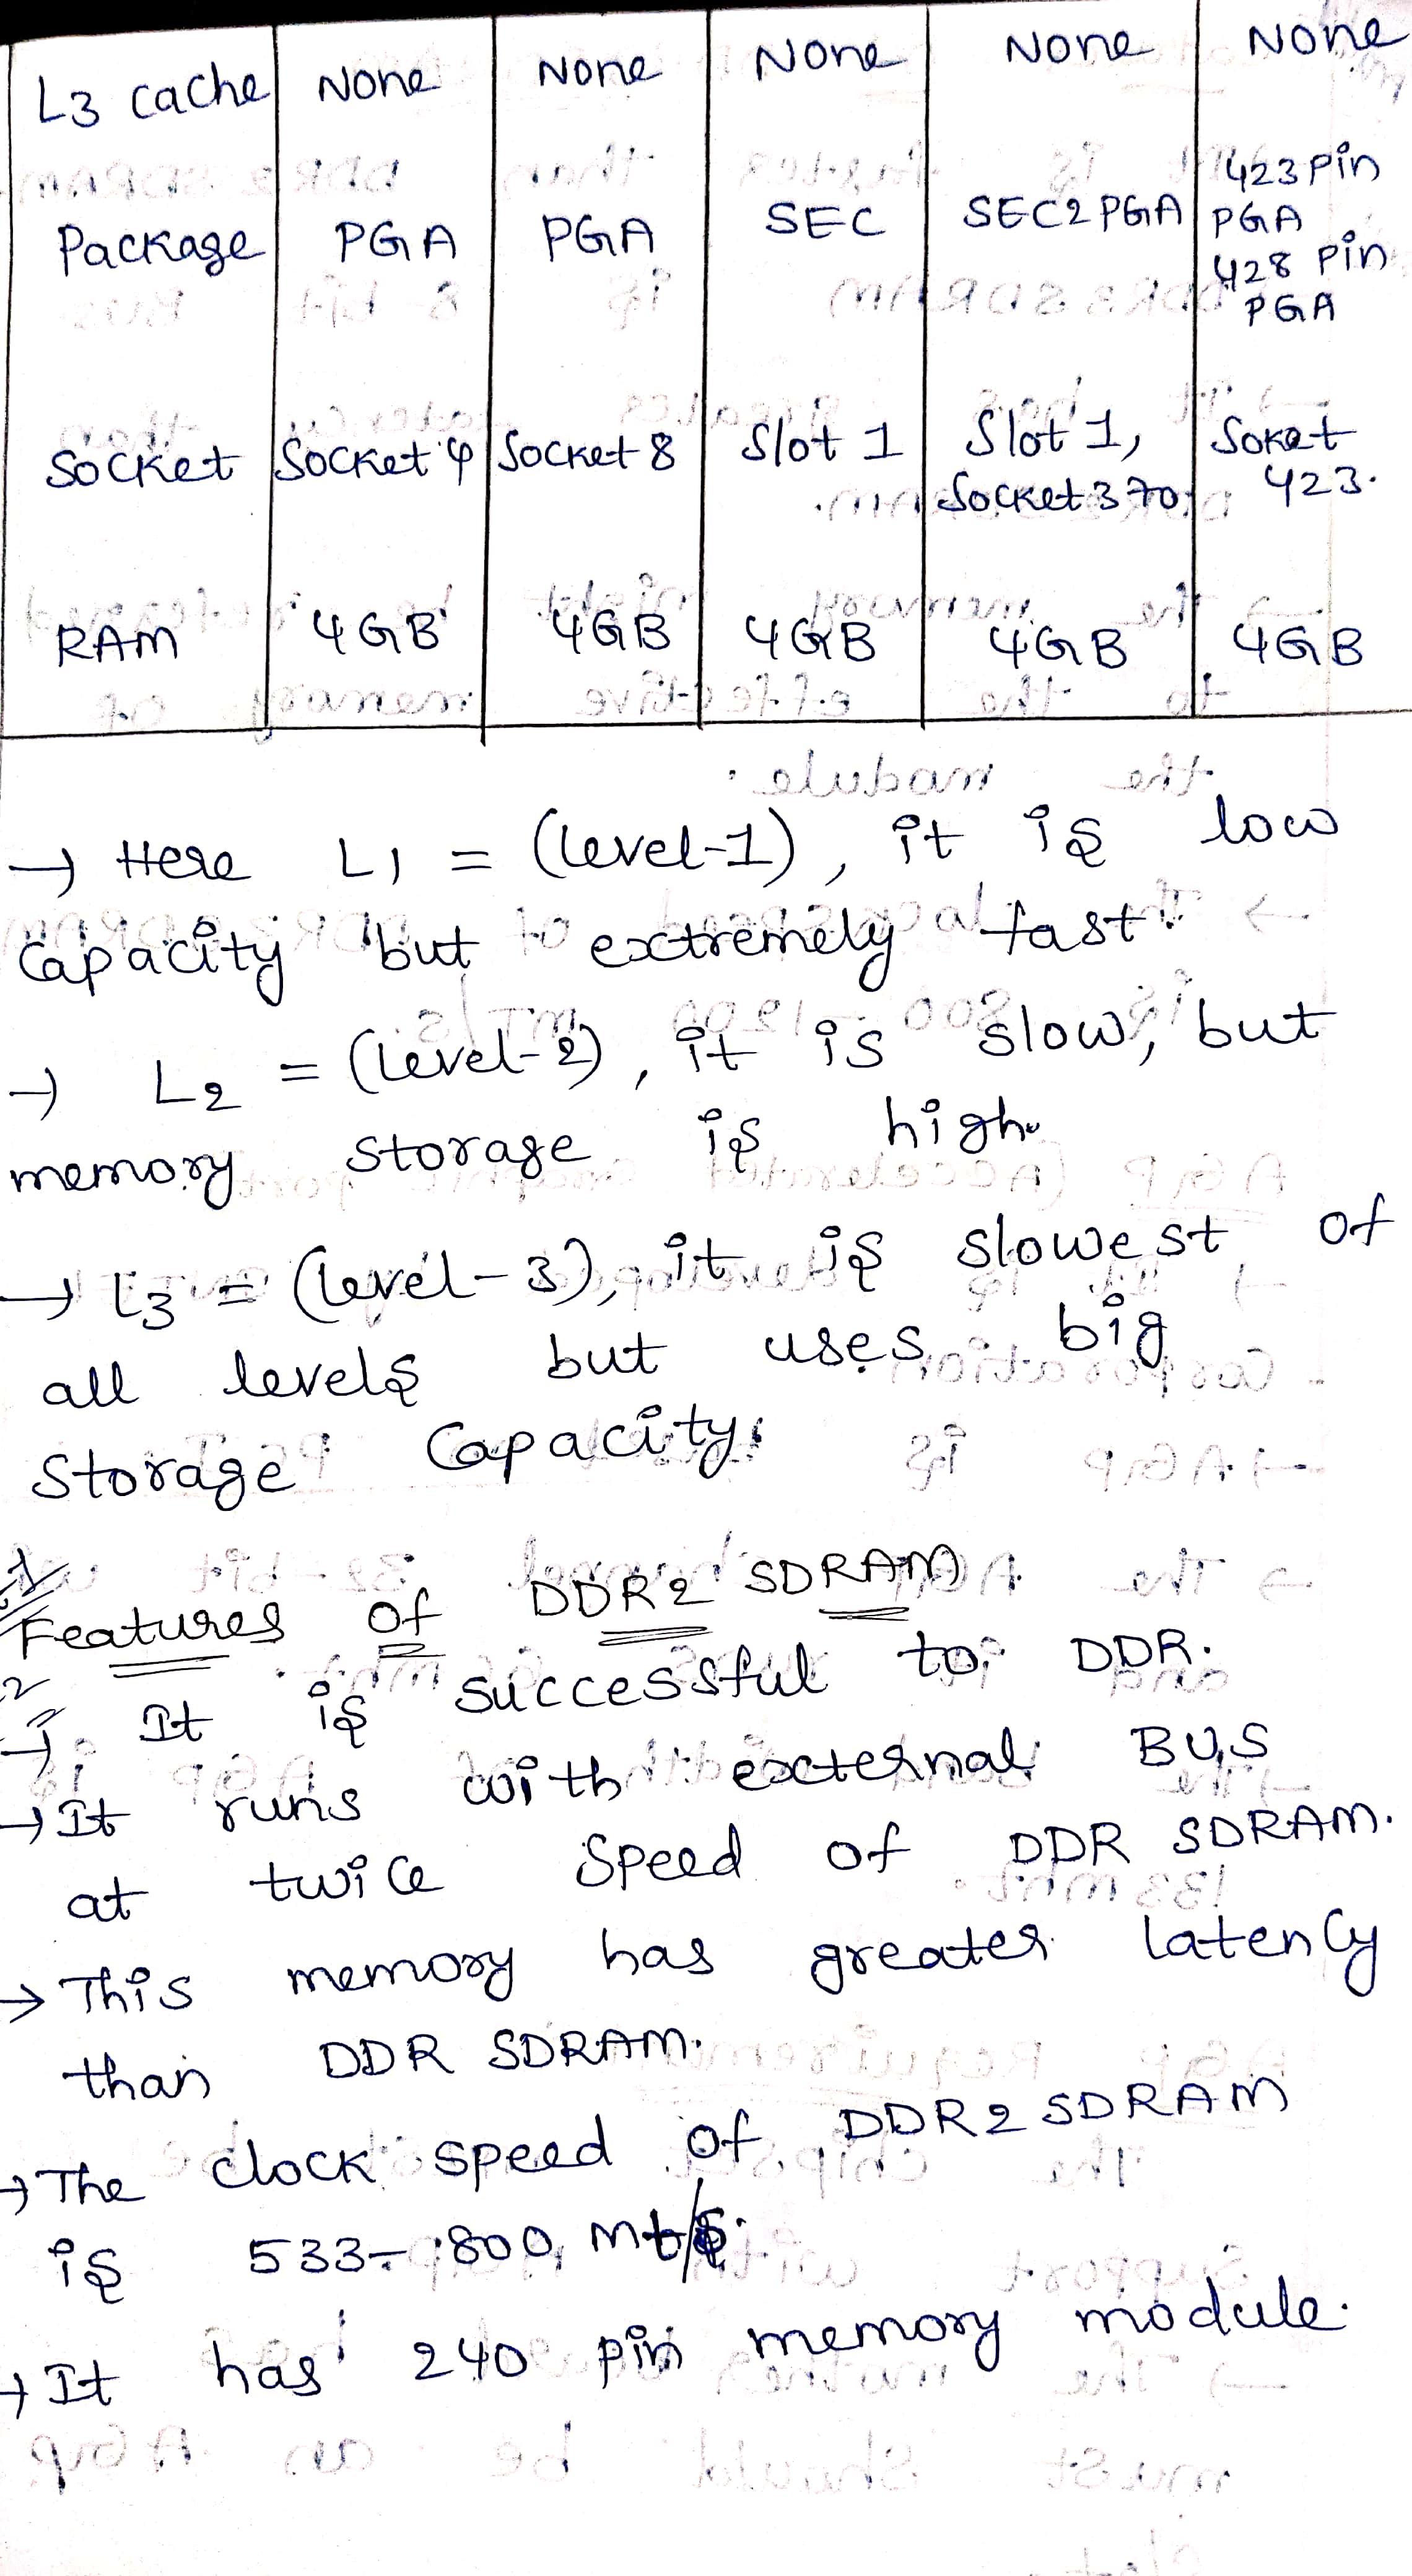 L3 cache None None None None None
Package PGA PGA SEC SEC2 PGA 423 pin
PGA
428 pin
PGA
Socket Socket 4 Socket 8 Slot 1 Slot 1, Soket
Socket 370 423.
RAM 4GB 4GB 4GB 4GB 4GB
→ Here L1 = (level-1), it is low
capacity but extremely fast.
→ L2 = (level-2), it is slow, but
memory storage is high.
→ L3 = (level-3), it is slowest of
all levels but uses big
storage capacity.
Features of DDR2 SDRAM
→ It is successful to DDR.
→ It runs with external BUS
at twice speed of DDR SDRAM.
→ This memory has greater latency
than DDR SDRAM.
→ The clock speed of DDR2 SDRAM
is 533-800 mt/s.
→ It has 240 pin memory module.